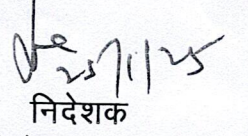 25/11/25
निदेशक